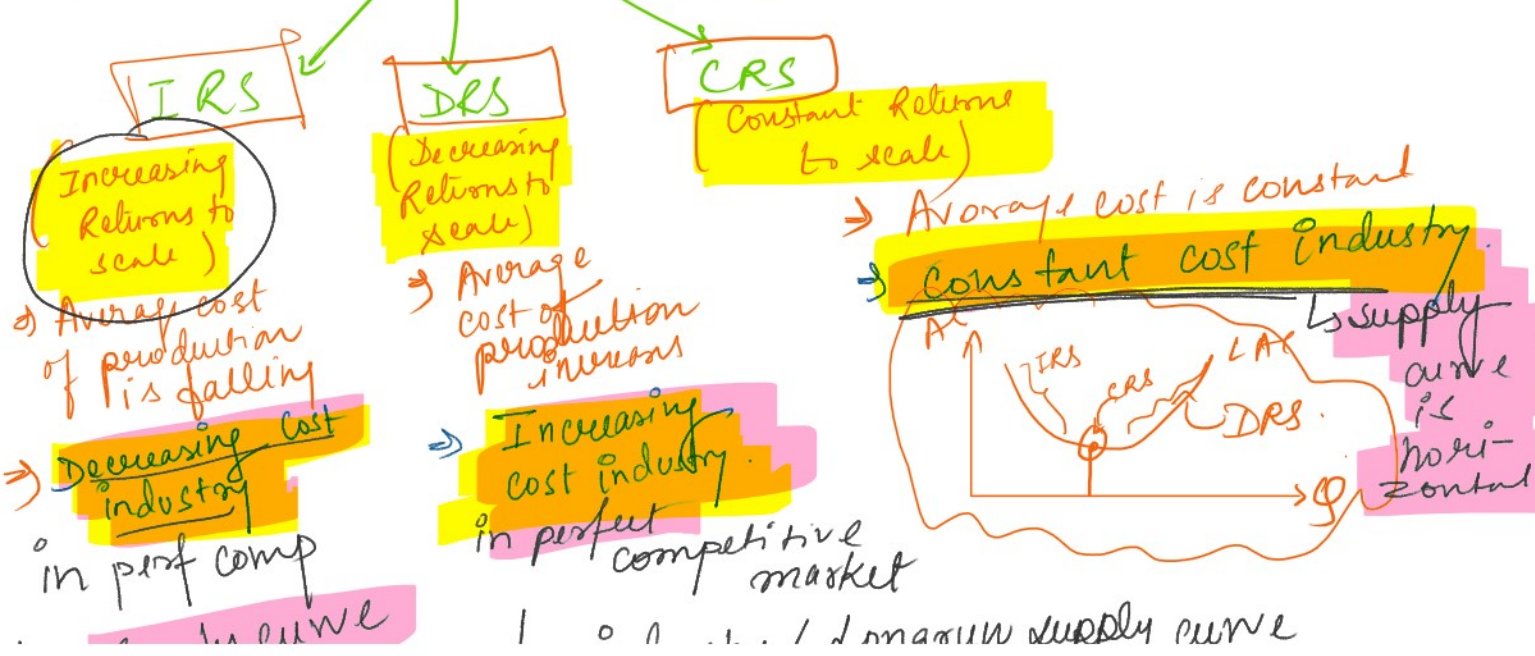 IRS
(Increasing
Returns to
scale)
⇒ Average cost
of production
is falling
⇒ Decreasing cost
industry
in perf comp
curve
DRS
(Decreasing
Returns to
scale)
⇒ Average
cost of
production
increases
⇒ Increasing
cost industry.
in perfect
competitive
market
longrun supply curve
CRS
(Constant Returns
to scale)
⇒ Average cost is constant
⇒ Constant cost industry.
↳ supply
curve
is
hori-
zontal
AC
IRS
CRS
LAC
DRS.
Q